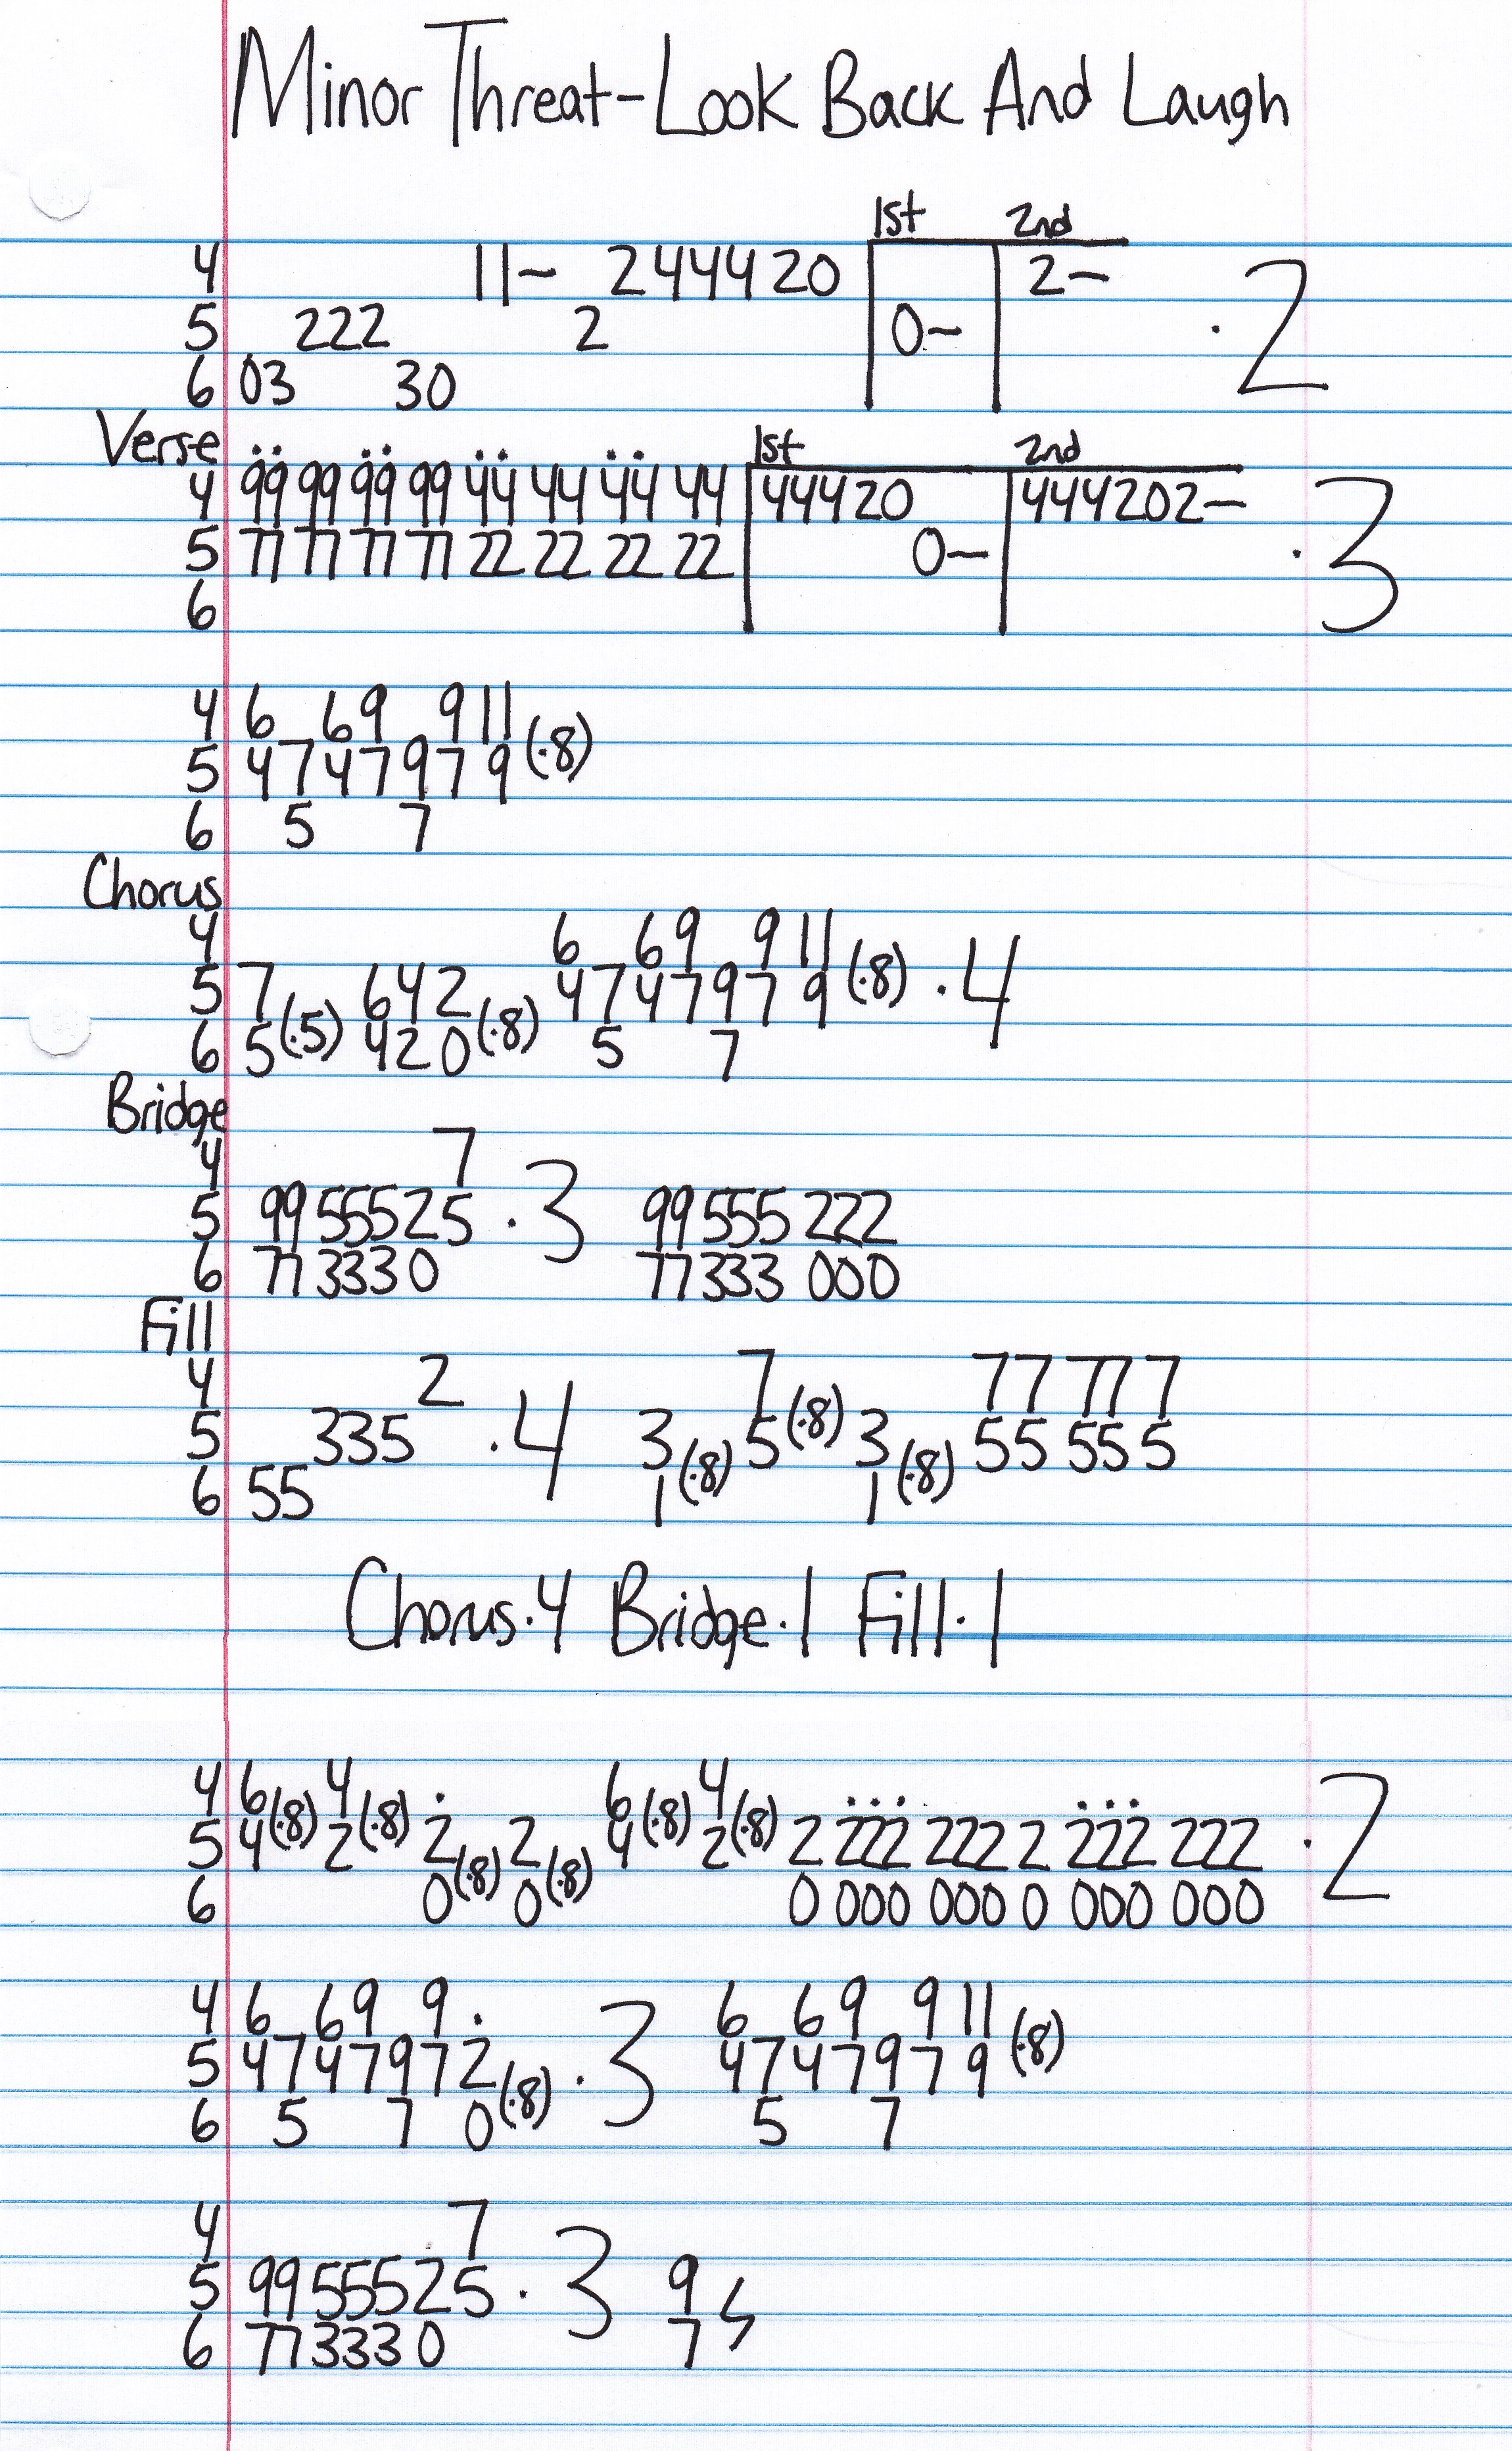 Minor Threat-Look Back And Laugh
1st 2nd
4 11~ 2 444 20 2~
5 222 2 0~ ·2
6 03 30
Verse 1st 2nd
4 99 99 99 99 44 44 44 44 44420 444202~
5 77 77 77 77 22 22 22 22 0~ ·3
6
4 6 69 9 11
5 4747979 (·8)
6 5 7
Chorus
4 6 69 9 11
5 7 642 4747979 (·8) ·4
6 5(·5) 420(·8) 5 7
Bridge
4 7
5 9955525 ·3 99555 222
6 773330 77333 000
Fill
4 2 7 77 77 7
5 335 ·4 3 5(·8) 3 55 55 5
6 55 1(·8) 1(·8)
Chorus·4 Bridge·1 Fill·1
4 6 4 6 4
5 4(·8) 2(·8) 2 2 4(·8) 2(·8) 2 222 222 2 222 222 ·2
6 0(·8) 0(·8) 0 000 000 0 000 000
4 6 69 9 6 69 9 11
5 4747972 ·3 4747979 (·8)
6 5 7 0(·8) 5 7
4 7
5 9955525 ·3 9
6 773330 7